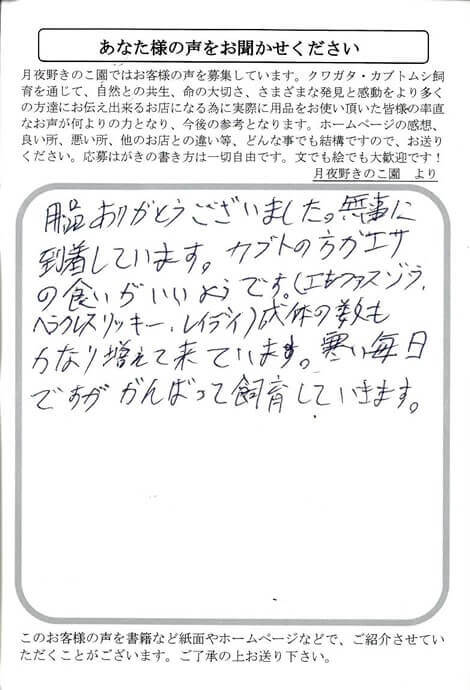 あなた様の声をお聞かせください
月夜野きのこ園ではお客様の声を募集しています。クワガタ・カブトムシ飼
育を通じて、自然との共生、命の大切さ、さまざまな発見と感動をより多く
の方達にお伝え出来るお店になる為に実際に用品をお使い頂いた皆様の率直
なお声が何よりの力となり、今後の参考となります。ホームページの感想、
良い所、悪い所、他のお店との違い等、どんな事でも結構ですので、お送り
ください。応募はがきの書き方は一切自由です。文でも絵でも大歓迎です！
月夜野きのこ園 より
用品ありがとうございました。無事に
到着しています。カブトの方がエサ
の食いがいいようです。(エレファスゾウ、
ヘラクレスリッキー、レイディ)成体の数も
かなり増えて来ています。寒い毎日
ですががんばって飼育していきます。
このお客様の声を書籍など紙面やホームページなどで、ご紹介させてい
ただくことがございます。ご了承の上お送り下さい。